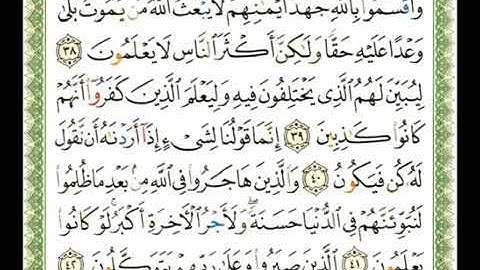 وَأَقْسَمُوا۟ بِٱللَّهِ جَهْدَ أَيْمَـٰنِهِمْ لَا يَبْعَثُ ٱللَّهُ مَن يَمُوتُ بَلَىٰ
وَعْدًا عَلَيْهِ حَقًّا وَلَـٰكِنَّ أَكْثَرَ ٱلنَّاسِ لَا يَعْلَمُونَ ٣٨
لِيُبَيِّنَ لَهُمُ ٱلَّذِى يَخْتَلِفُونَ فِيهِ وَلِيَعْلَمَ ٱلَّذِينَ كَفَرُوٓا۟ أَنَّهُمْ
كَانُوا۟ كَـٰذِبِينَ ٣٩ إِنَّمَا قَوْلُنَا لِشَىْءٍ إِذَآ أَرَدْنَـٰهُ أَن نَّقُولَ
لَهُۥ كُن فَيَكُونُ ٤٠ وَٱلَّذِينَ هَاجَرُوا۟ فِى ٱللَّهِ مِنۢ بَعْدِ مَا ظُلِمُوا۟
لَنُبَوِّئَنَّهُمْ فِى ٱلدُّنْيَا حَسَنَةً ۖ وَلَأَجْرُ ٱلْـَٔاخِرَةِ أَكْبَرُ ۚ لَوْ كَانُوا۟
يَعْلَمُونَ ٤١ ٱلَّذِينَ صَبَرُوا۟ وَعَلَىٰ رَبِّهِمْ يَتَوَكَّلُونَ ٤٢